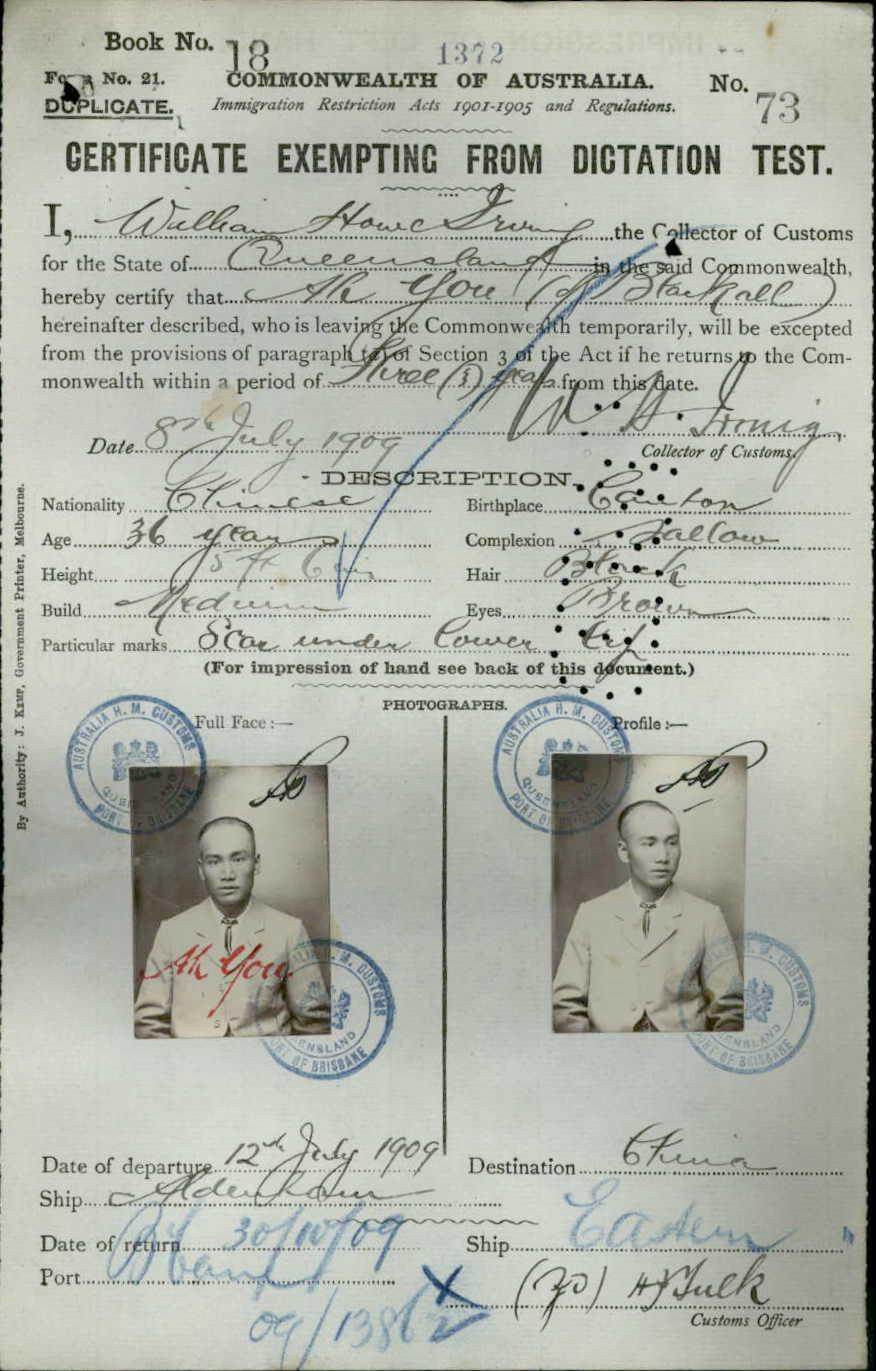 Book No. 18 1372
Form No. 21. COMMONWEALTH OF AUSTRALIA. No. 73
DUPLICATE. Immigration Restriction Acts 1901-1905 and Regulations.
CERTIFICATE EXEMPTING FROM DICTATION TEST.
I, William Howe Irving the Collector of Customs
for the State of Queensland in the said Commonwealth,
hereby certify that Ah You (of Blackall)
hereinafter described, who is leaving the Commonwealth temporarily, will be excepted
from the provisions of paragraph (a) of Section 3 of the Act if he returns to the Com-
monwealth within a period of Three (3) years from this date.
W. H. Irving
Date 8th July 1909 Collector of Customs.
DESCRIPTION.
Nationality Chinese Birthplace Canton
Age 36 years Complexion Sallow
Height 5 ft 6 in Hair Black
Build Medium Eyes Brown
Particular marks Scar under lower lip
(For impression of hand see back of this document.)
PHOTOGRAPHS.
Full Face :— Profile :—
AUSTRALIA H. M. CUSTOMS QUEENSLAND PORT OF BRISBANE
AUSTRALIA H. M. CUSTOMS QUEENSLAND PORT OF BRISBANE
Ah You
AUSTRALIA H. M. CUSTOMS QUEENSLAND PORT OF BRISBANE
AUSTRALIA H. M. CUSTOMS QUEENSLAND PORT OF BRISBANE
Date of departure 12th July 1909 Destination China
Ship Aldenham
Date of return 30/10/09 Ship Eastern
Port
09/13862
Customs Officer
By Authority: J. Kemp, Government Printer, Melbourne.